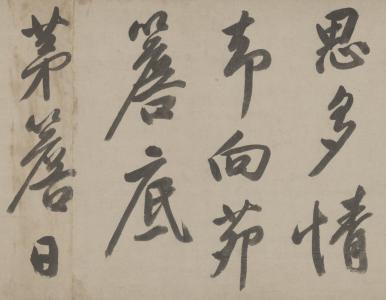 思多情
却向茆
簷底
茅簷日